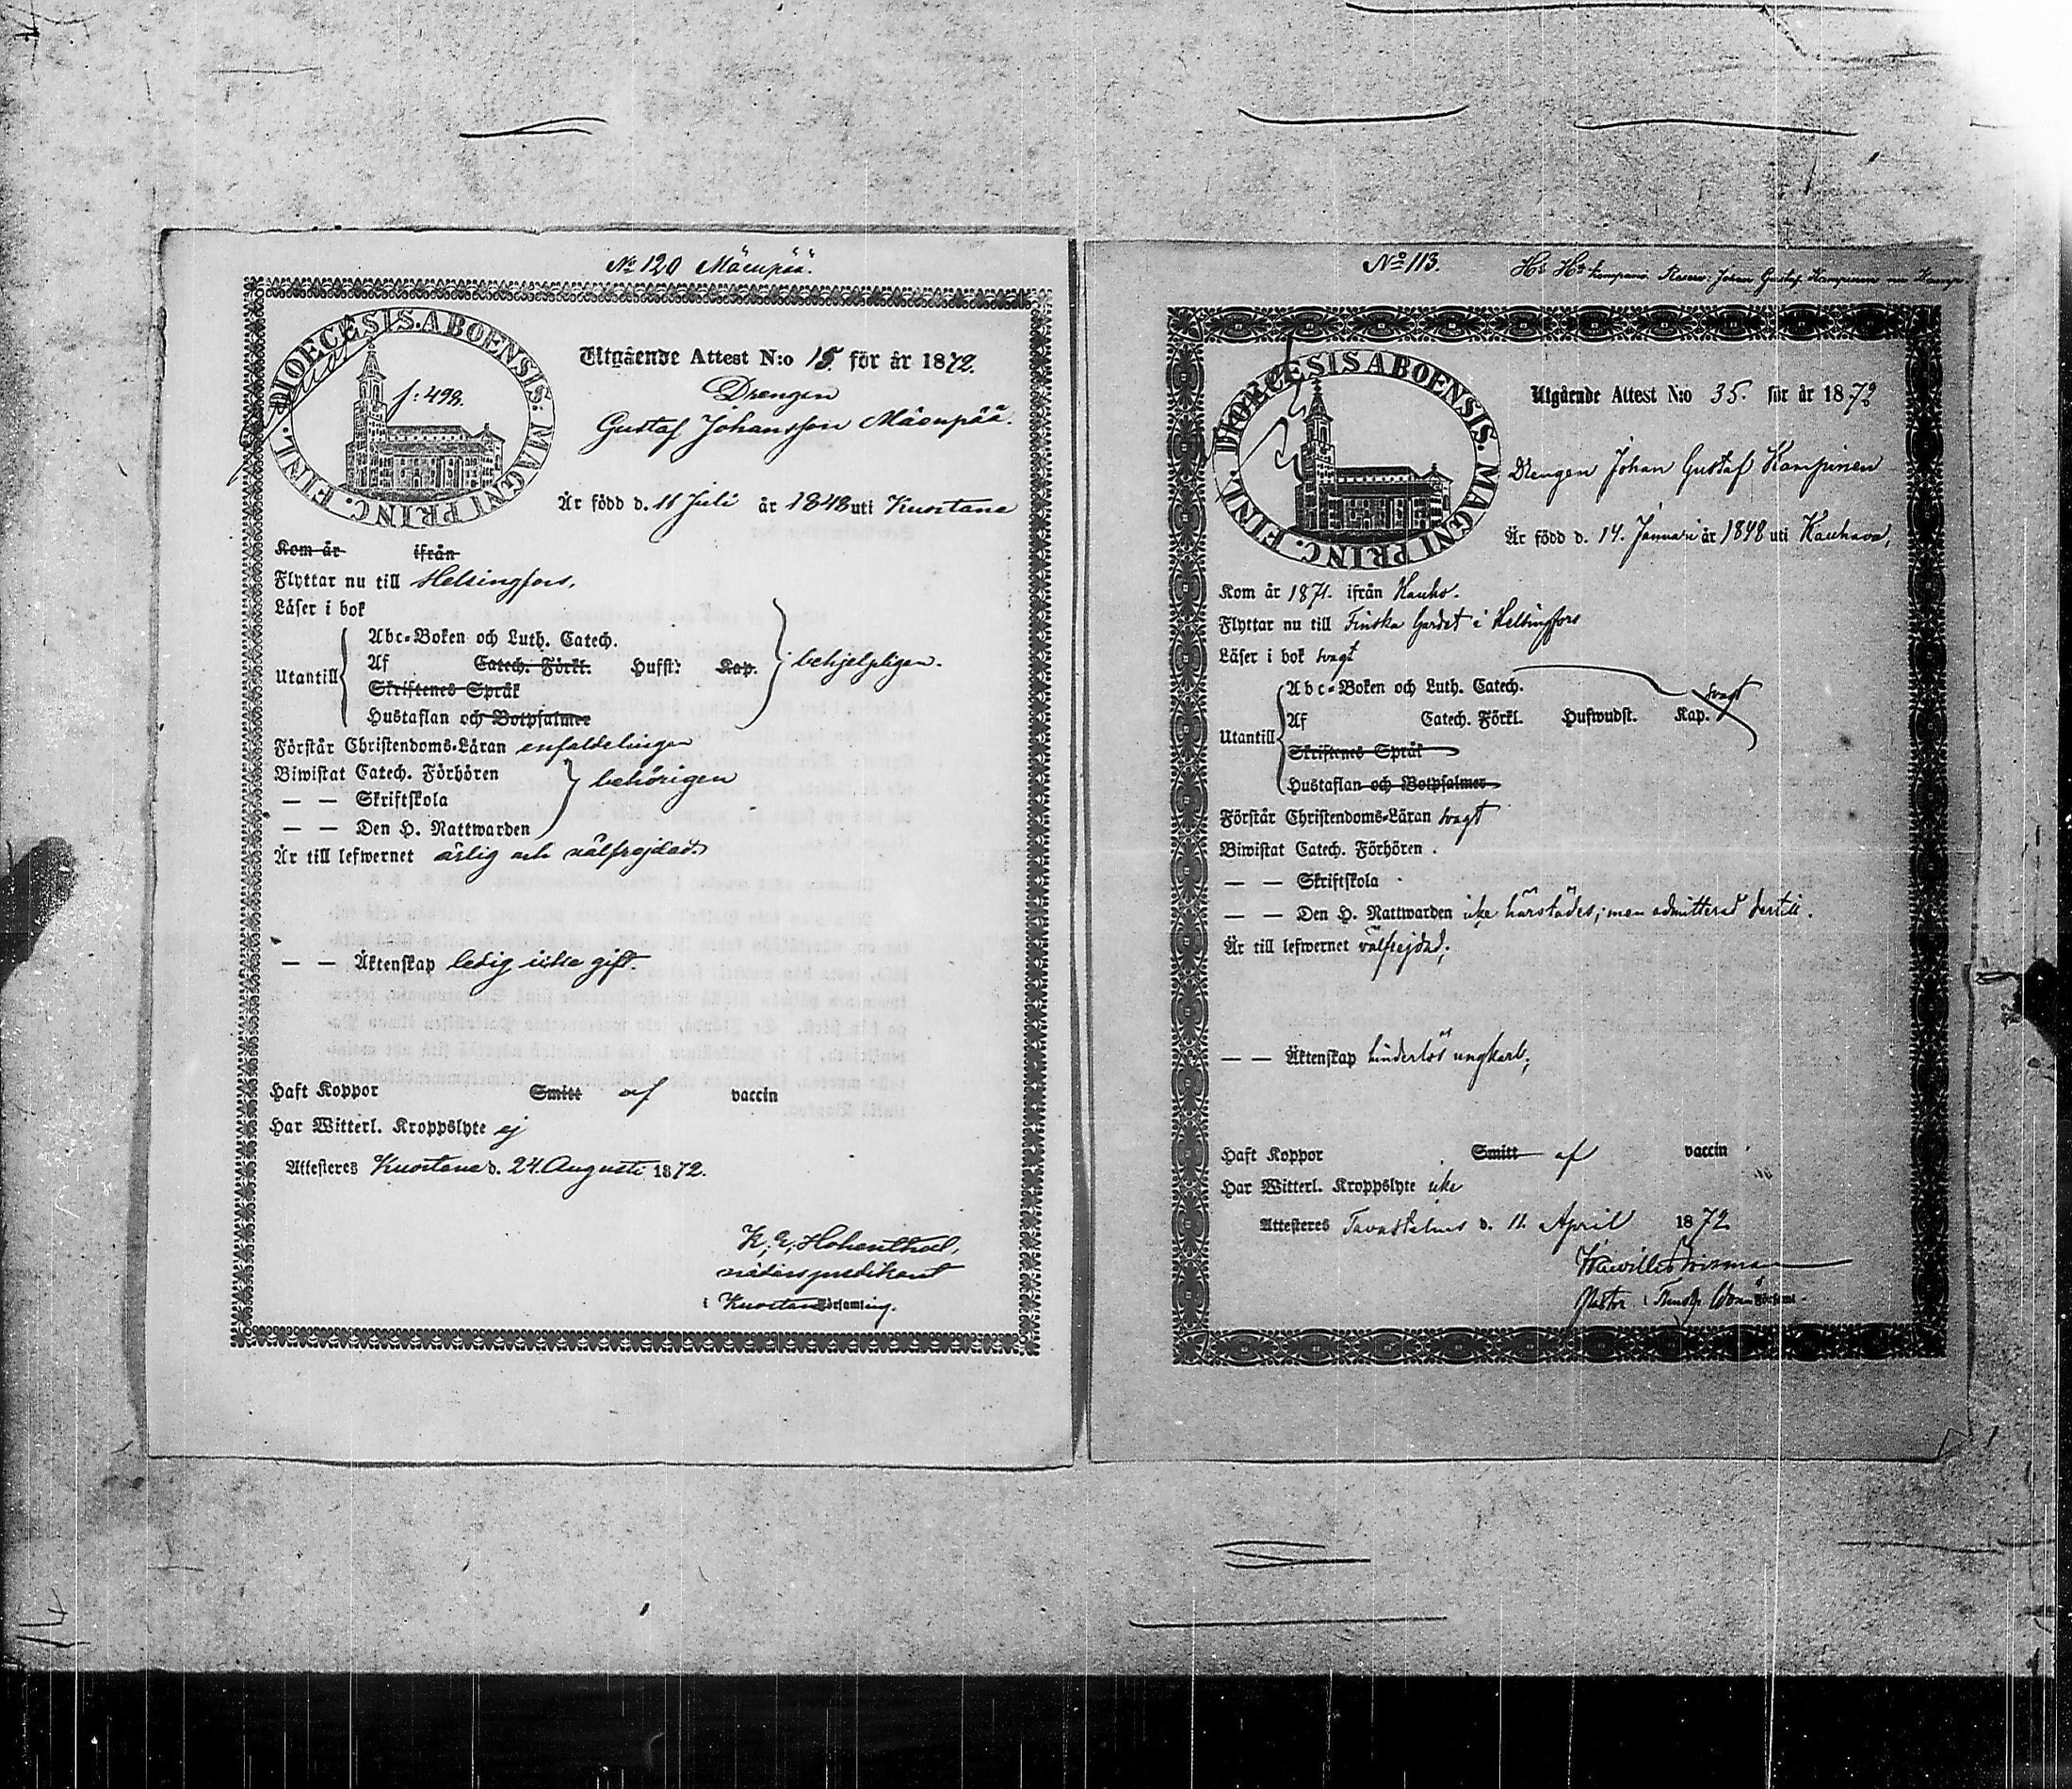 No 120 Mäenpää.
DIOECESIS. ABOENSIS. MAGNI PRINC. FINL.
f: 498.
Utgående Attest N:o 15. för år 1872.
Drengen
Gustaf Johansson Mäenpää.
Är född d. 11 Juli år 1848 uti Kuortane
Kom år ifrån
Flyttar nu till Helsingfors.
Läser i bok
Utantill
Abc-Boken och Luth. Catech.
Af Catech. Förkl. Hufst: Kap.
Skriftenes Språk
Hustaflan och Botpsalmer
behjelpligen.
Förstår Christendoms-Läran enfaldeligen
Biwistat Catech. Förhören
— — Skriftskola
— — Den H. Nattwarden
behörigen
Är till lefwernet ärlig och välfrejdad.
— — Äktenskap ledig icke gift.
Haft Koppor Smitt af vaccin
Har Witterl. Kroppslyte ej
Attesteres Kuortane d. 24. Augusti 1872.
K. E. Hohenthal,
i Kuortane Församling.
No 113.
Johan Gustaf Kampinen
DIOECESIS ABOENSIS. MAGNI PRINC. FINL.
Utgående Attest N:o 35. för år 1872
Drengen Johan Gustaf Kampinen
Är född d. 14. Januari år 1848 uti Kauhava,
Kom år 1871. ifrån Kauh.
Flyttar nu till Finska Gardet i Helsingfors
Läser i bok svagt
Utantill
Abc-Boken och Luth. Catech.
Af Catech. Förkl. Hufwudst. Kap.
svagt
Skriftenes Språk
Hustaflan och Botpsalmer
Förstår Christendoms-Läran svagt
Biwistat Catech. Förhören
— — Skriftskola
— — Den H. Nattwarden icke härstädes, men admitterad dertill.
Är till lefwernet välfrejdad;
— — Äktenskap hinderlös ungkarl;
Haft Koppor Smitt af vaccin
Har Witterl. Kroppslyte icke
Attesteres Tavastehus d. 11. April 1872
Pastor i Församl.